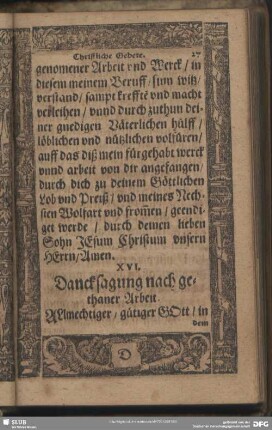 Christliche Gebete. 27
genomener Arbeit vnd Werck / in
diesem meinem Beruff / sinn witz /
verstand / sampt krefftē vnd macht
verleihen / vnnd durch zuthun dei-
ner gnedigen Väterlichen hülff /
löblichen vnd nützlichen volfüren /
auff das diß mein fürgehabt werck
vnnd arbeit von dir angefangen /
durch dich zu deinem Göttlichen
Lob vnd Preiß / vnd meines Nech-
sten Wolfart vnd from̃en / geendi-
get werde / durch deinen lieben
Sohn JEsum Christum vnsern
HErrn / Amen.
XVI.
Dancksagung nach ge-
thaner Arbeit.
ALmechtiger / gütiger GOtt / in
dem
D
SLUB
DFG